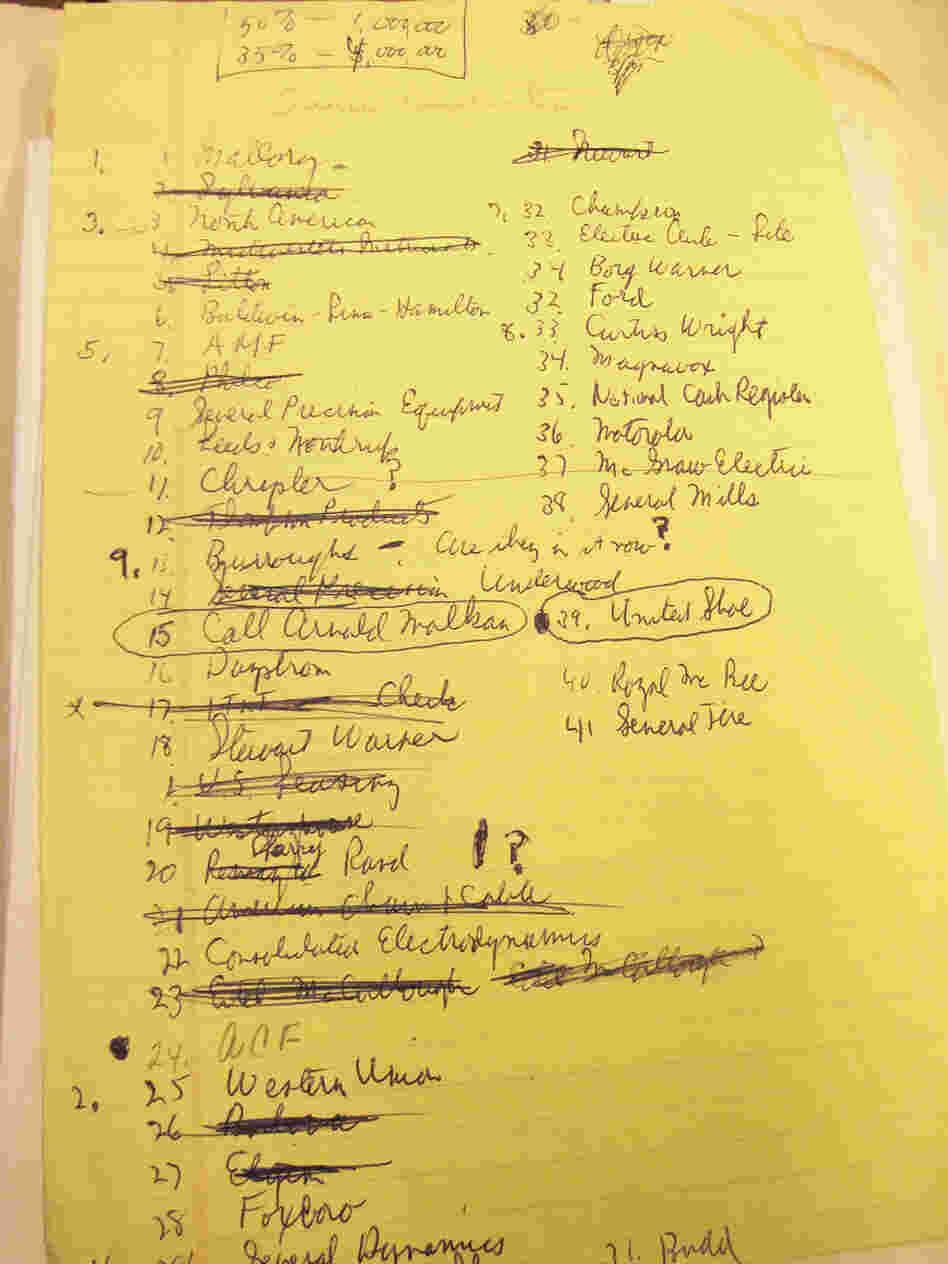 50% - 1,000,00
35% - 4,000,00
1. 1 Mallory -
2 Sylvania
3. 3 North American
4
5 Litton
6. Baldwin-Lima-Hamilton
5. 7. AMF
8. Philco
9 General Precision Equipment
10. Leeds & Northrup
11. Chrysler ?
12. Thompson Products
9. 13. Burroughs - Are they in it now?
14 General Precision Underwood
15 Call Arnold Malkan
16 Daystrom
x 17. Check
18 Stewart Warner
1. U.S. Leasing
19 Westinghouse
20 Sperry Rand 1 ?
21 American Chain & Cable
22 Consolidated Electrodynamics
23 McCullough McCullough
24. ACF
2. 25 Western Union
26 Bulova
27 Elgin
28 Foxboro
General Dynamics
31 Stewart
7. 32 Champion
33. Electric - Lite
34 Borg Warner
32. Ford
8. 33 Curtiss Wright
34. Magnavox
35. National Cash Register
36. Motorola
37 McGraw Electric
38. General Mills
39. United Shoe
40. Royal McBee
41 General Tire
31. Budd